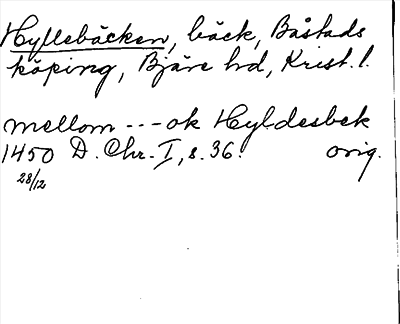 Hyllebäcken, bäck, Båstads
köping, Bjäre hd, Krist. l.
mellom --- ok Hyldesbek
1450 D. Chr. I, s. 36. orig.
28/12